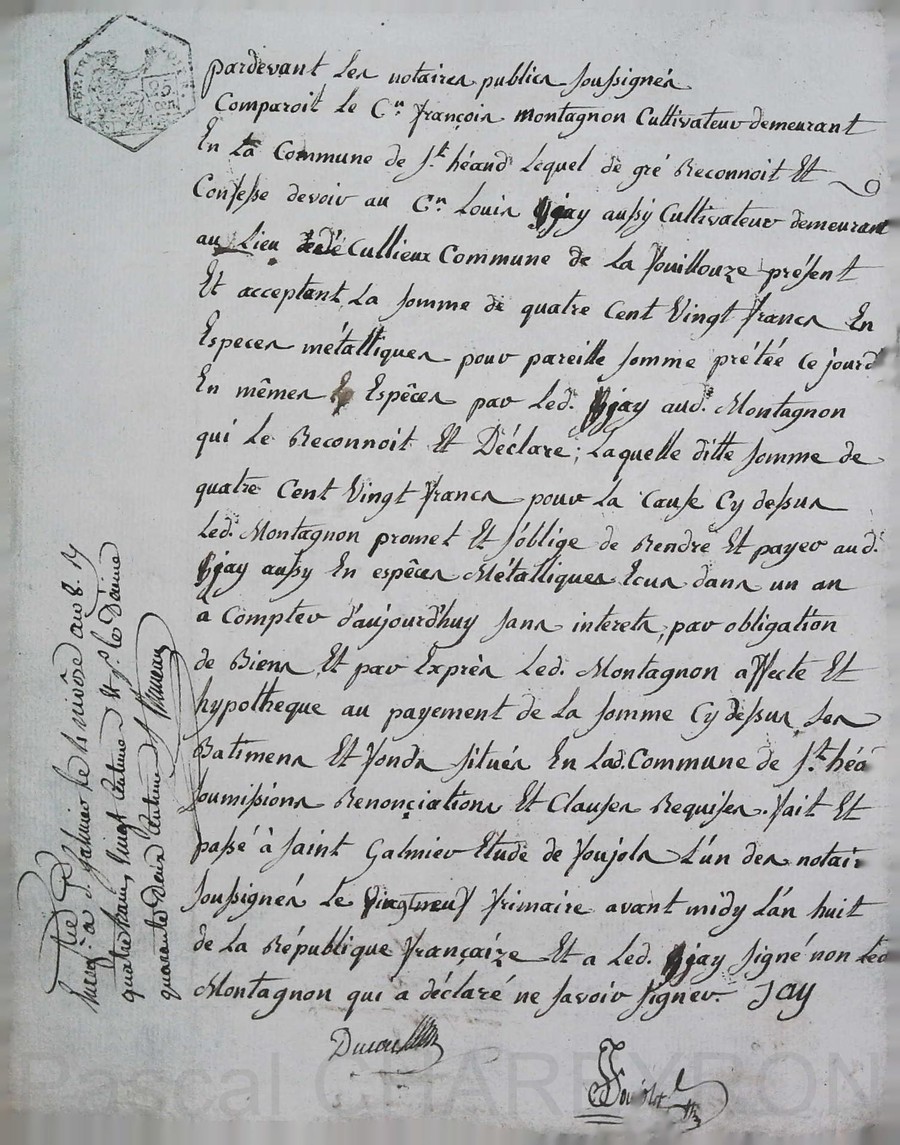 pardevant Les notaires publics soussignés
Comparoit Le Cen françois montagnon Cultivateur demeurant
En La Commune de St. héand Lequel de gré Reconnoit Et
Confesse devoir au Cen Louis jay aussy Cultivateur demeurant
au Lieu de Cullieux Commune de La fouillouze présent
Et acceptant La somme de quatre Cent Vingt francs En
Especes métalliques pour pareille somme prétée Ce jourd
En mêmes Espêces par Led. jay aud. Montagnon
qui Le Reconnoit Et Déclare; Laquelle ditte somme de
quatre Cent Vingt francs pour La Cause Cy dessus
Led. Montagnon promet Et s'oblige de Rendre Et payer aud.
jay aussy En espêces Métalliques Ecus dans un an
à Compter d'aujourd'huy sans interets, par obligation
de Biens Et par Exprès Led. Montagnon affecte Et
hypotheque au payement de La somme Cy dessus Ses
Batimens Et fonds situés En Lad. Commune de St. héa
soumissions Renonçiations Et Clauses Requises. fait Et
passé à saint Galmier Etude de foujols L'un des notair
soussignés Le vingtneuf frimaire avant midy L'an huit
de La République françaize Et a Led. jay signé non Led
Montagnon qui a déclaré ne savoir signer. Jay
à St. galmier le nivôse an 8.
quatre francs vingt centimes et pr. le Décime
quarante deux centimes
PASCAL CHAREYRON